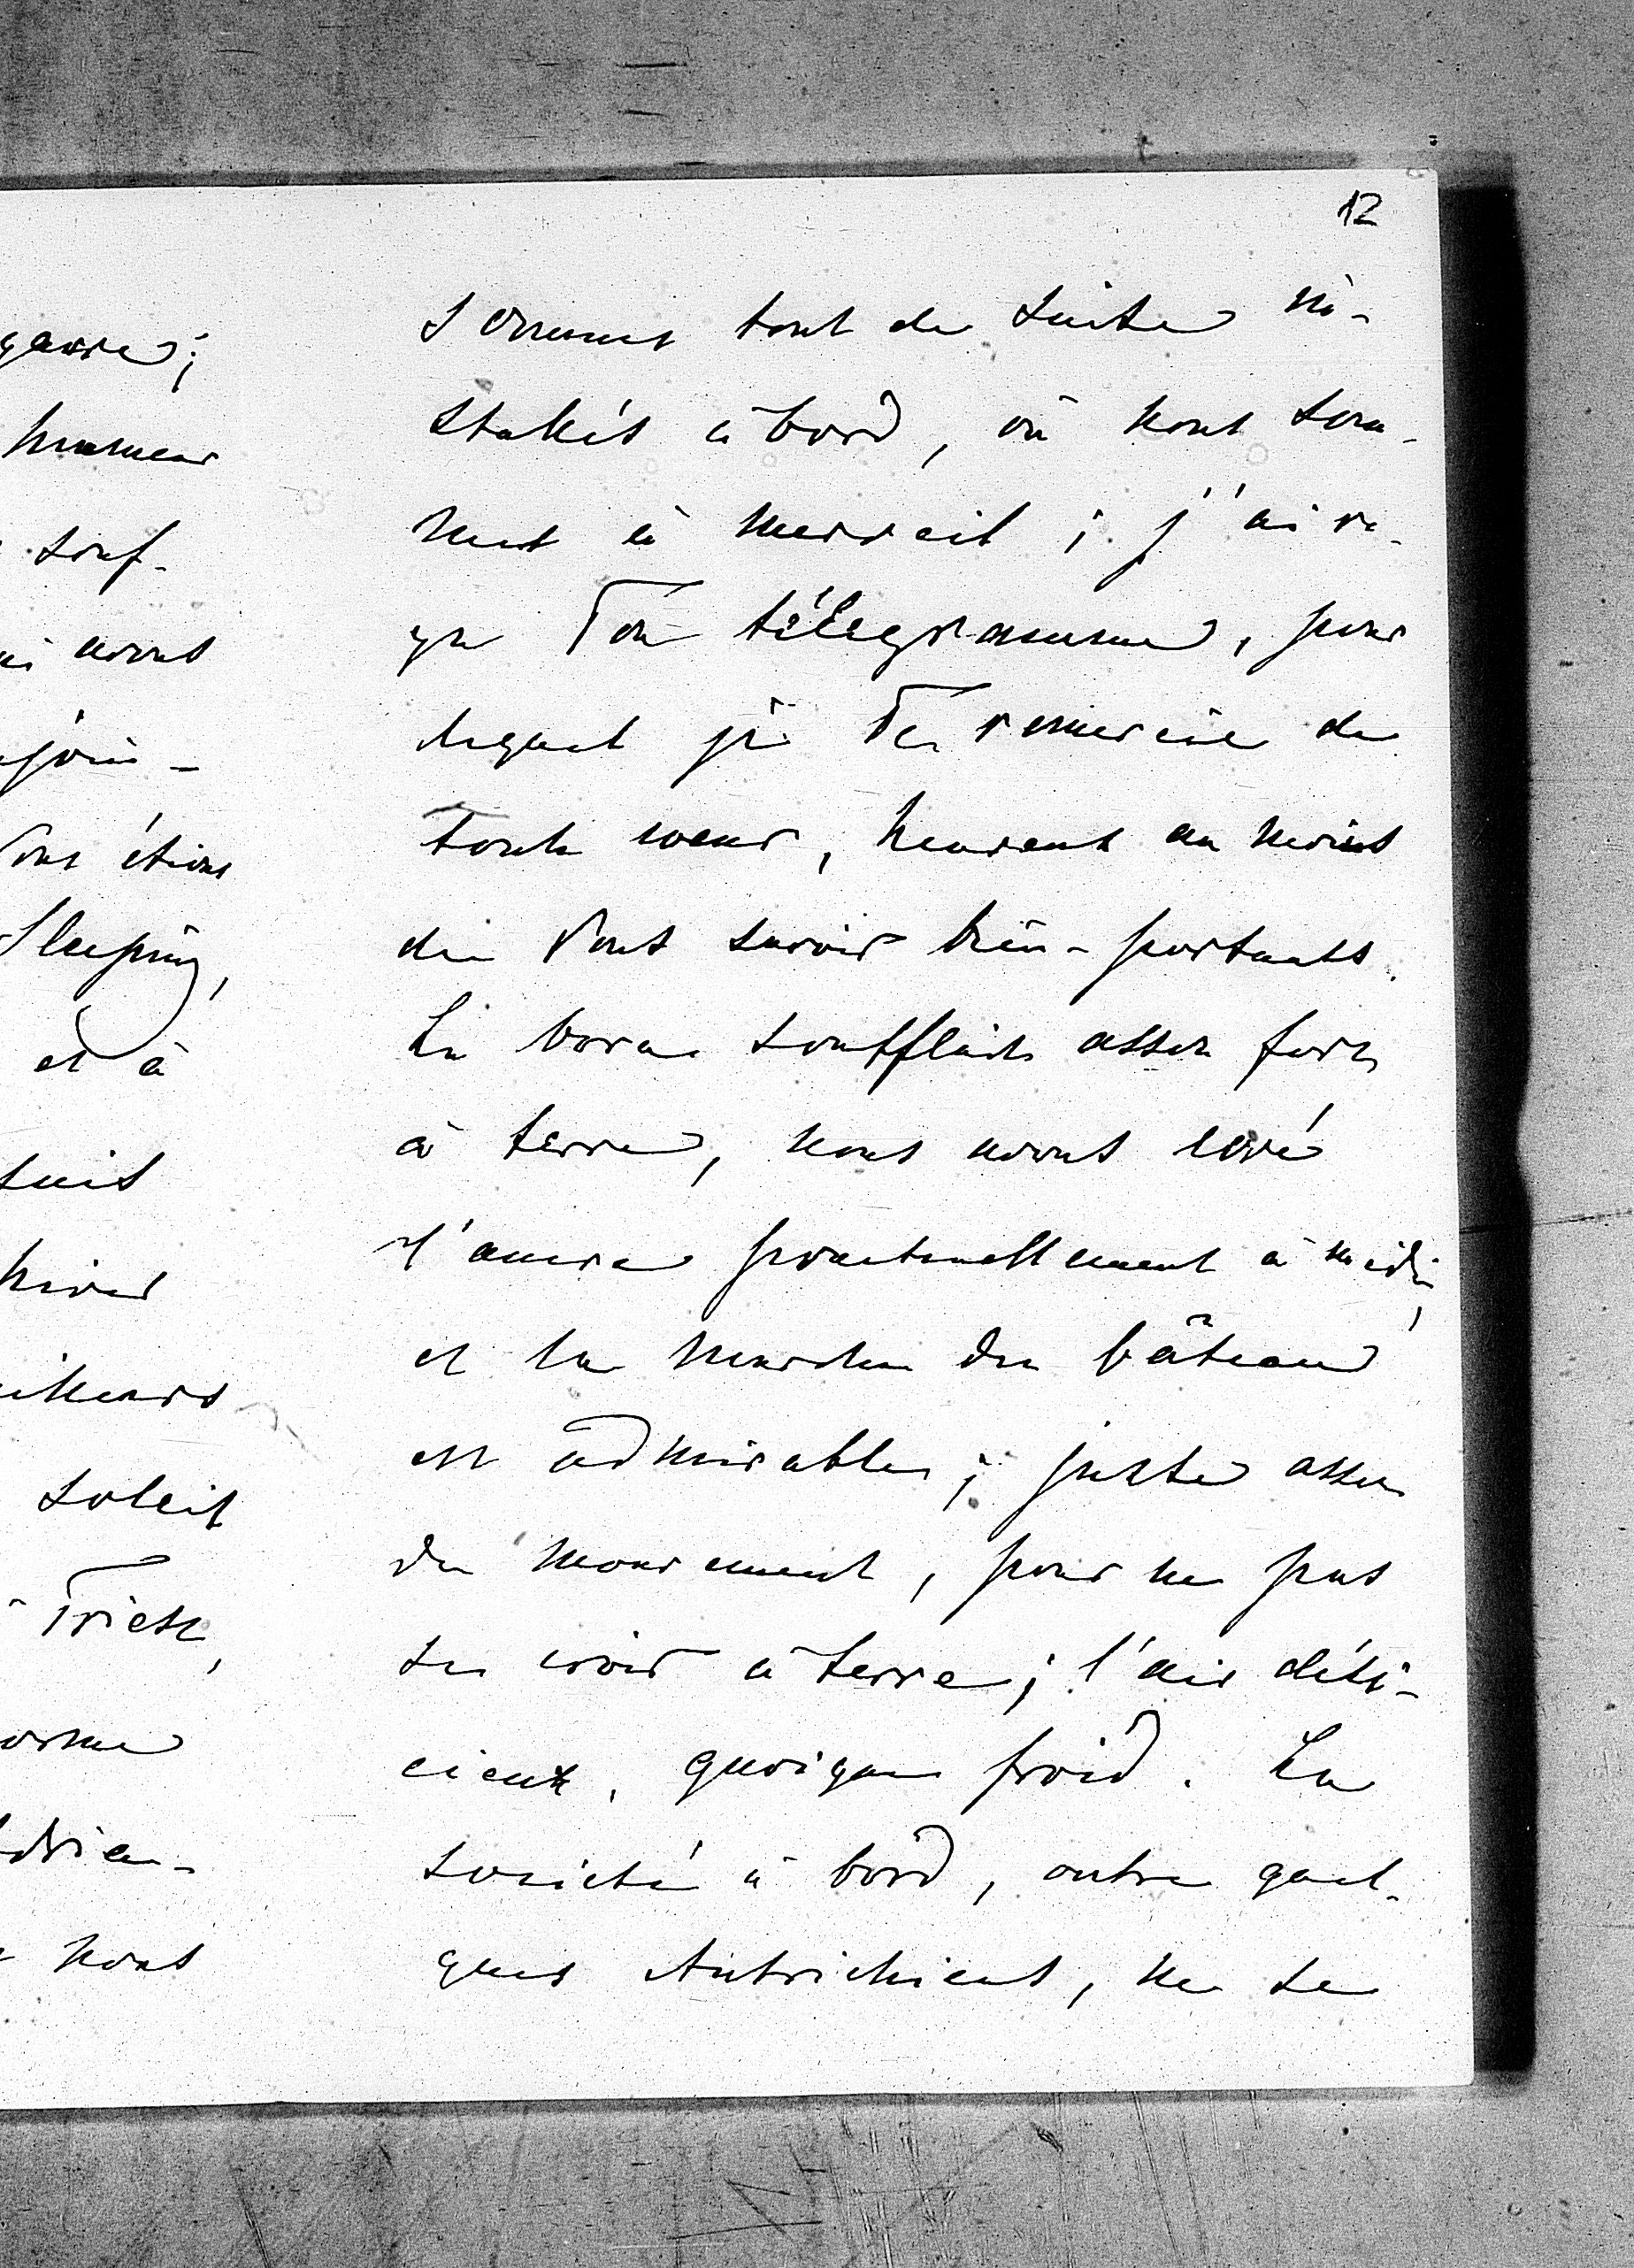 12
garre;
humeur
souf-
avons
join-
Vous étions
Sleeping,
et à
suit
hiver
soleil
Trieste,
nous
sommes tout de suite in-
stallés à bord, où nous som-
mes à merveil; j'ai re-
çu Ton télégramme, pour
lequel je Te remercie de
tout coeur, heureux au moins
de Vous savoir bien-portants.
La bora soufflait assez fort
à terre, nous avons levé
l'ancre ponctuellement à midi,
et la marche du bâteau
est admirable; juste assez
du mouvement, pour ne pas
se croir à terre; l'air déli-
cieux, quoique froid. La
société à bord, outre quel-
ques Autrichiens, ne se